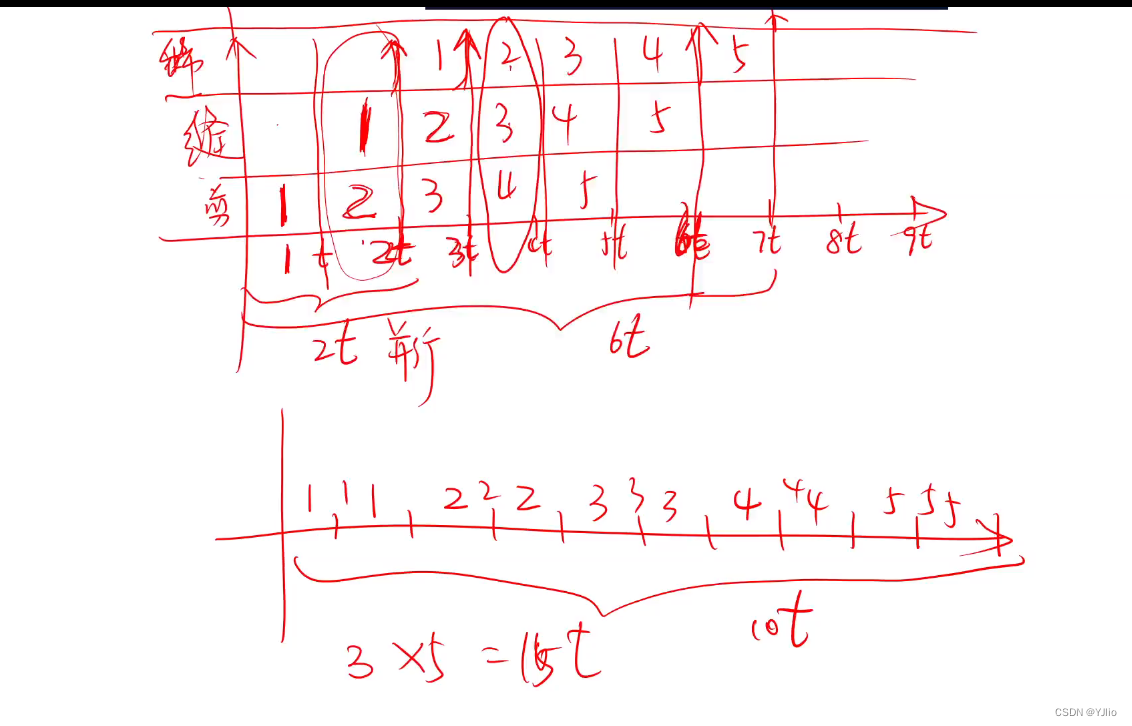 1 2 3 4 5
缝 1 2 3 4 5
剪 1 2 3 4 5
1t 2t 3t 4t 5t 6t 7t 8t 9t
2t 并行 6t
1 1 1 2 2 2 3 3 3 4 4 4 5 5 5
10t
3×5=15t
CSDN @YJlio